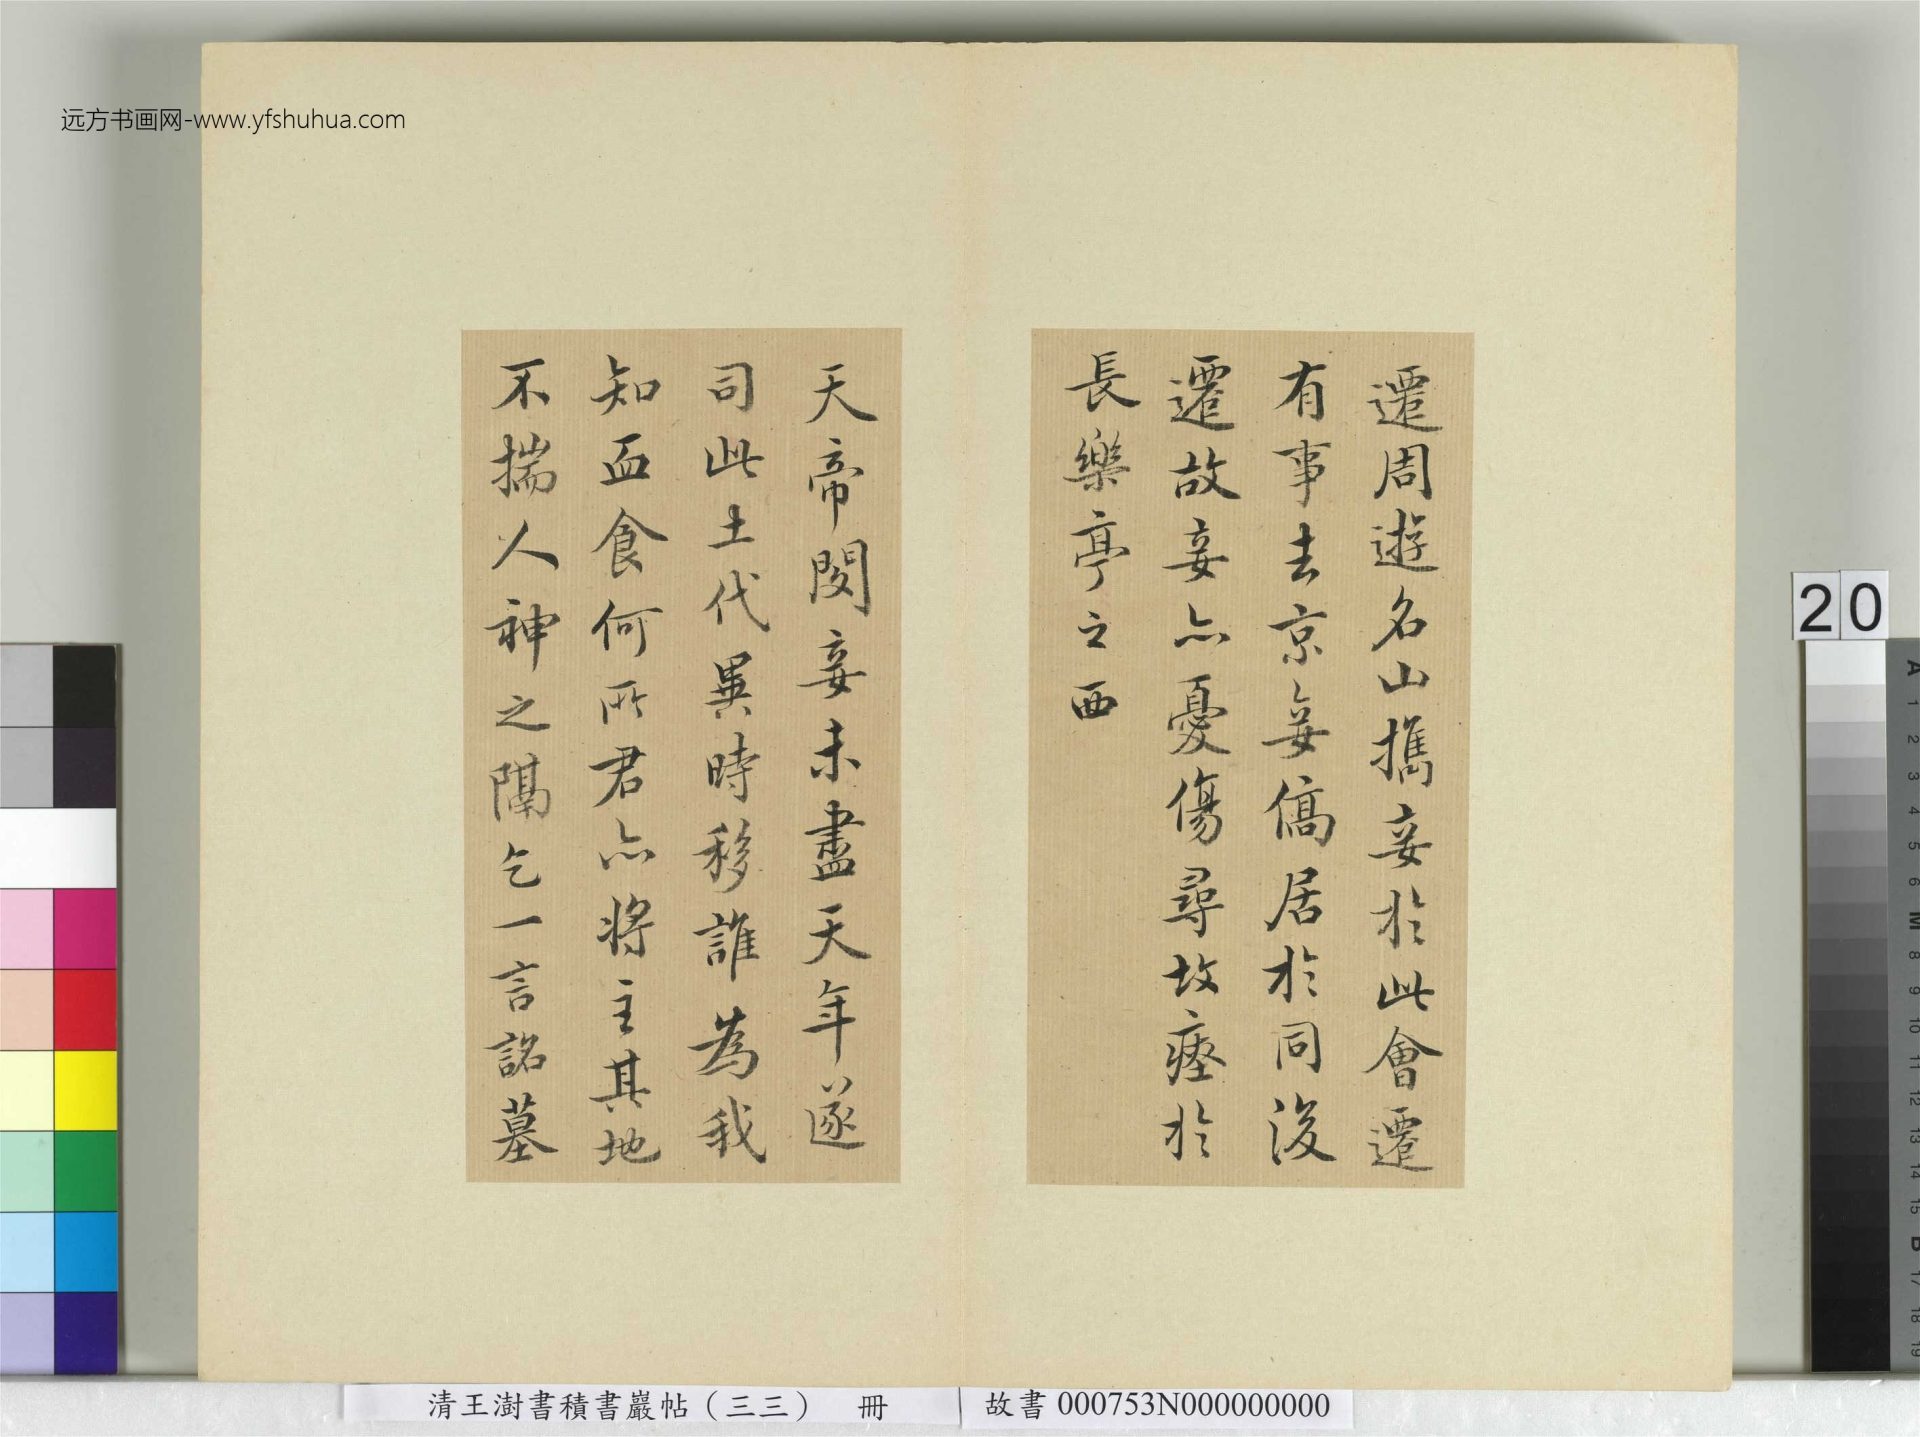 远方书画网-www.yfshuhua.com
遷周遊名山攜妾於此會遷
有事去京妾僑居於同後
遷故妾亦憂傷尋故瘞於
長樂亭之西
天帝閔妾未盡天年遂
司此土代異時移誰為我
知血食何所君亦將主其地
不揣人神之隔乞一言諮墓
20
清王澍書積書巖帖（三三） 冊
故書 000753N000000000
A 1 2 3 4 5 6 M 8 9 10 11 12 13 14 15 B 17 18 19